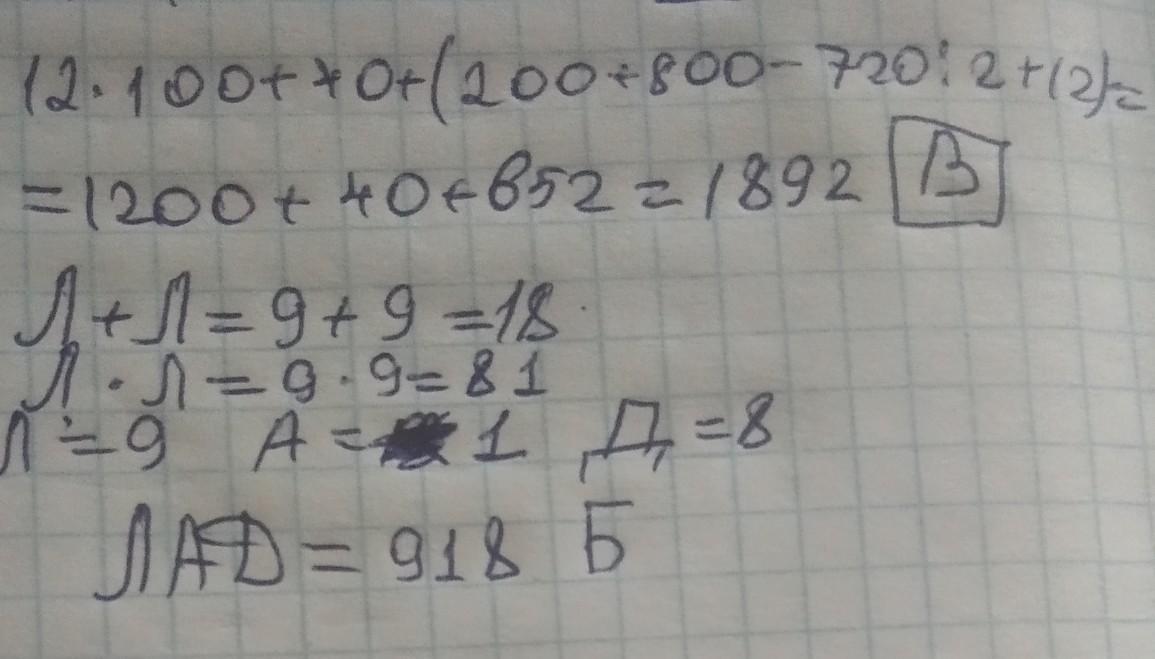 12·100+40+(200+800-720:2+12)=
=1200+40+652=1892 В
Л+Л=9+9=18
Л·Л=9·9=81
Л=9 А=1 Д=8
ЛАД=918 Б